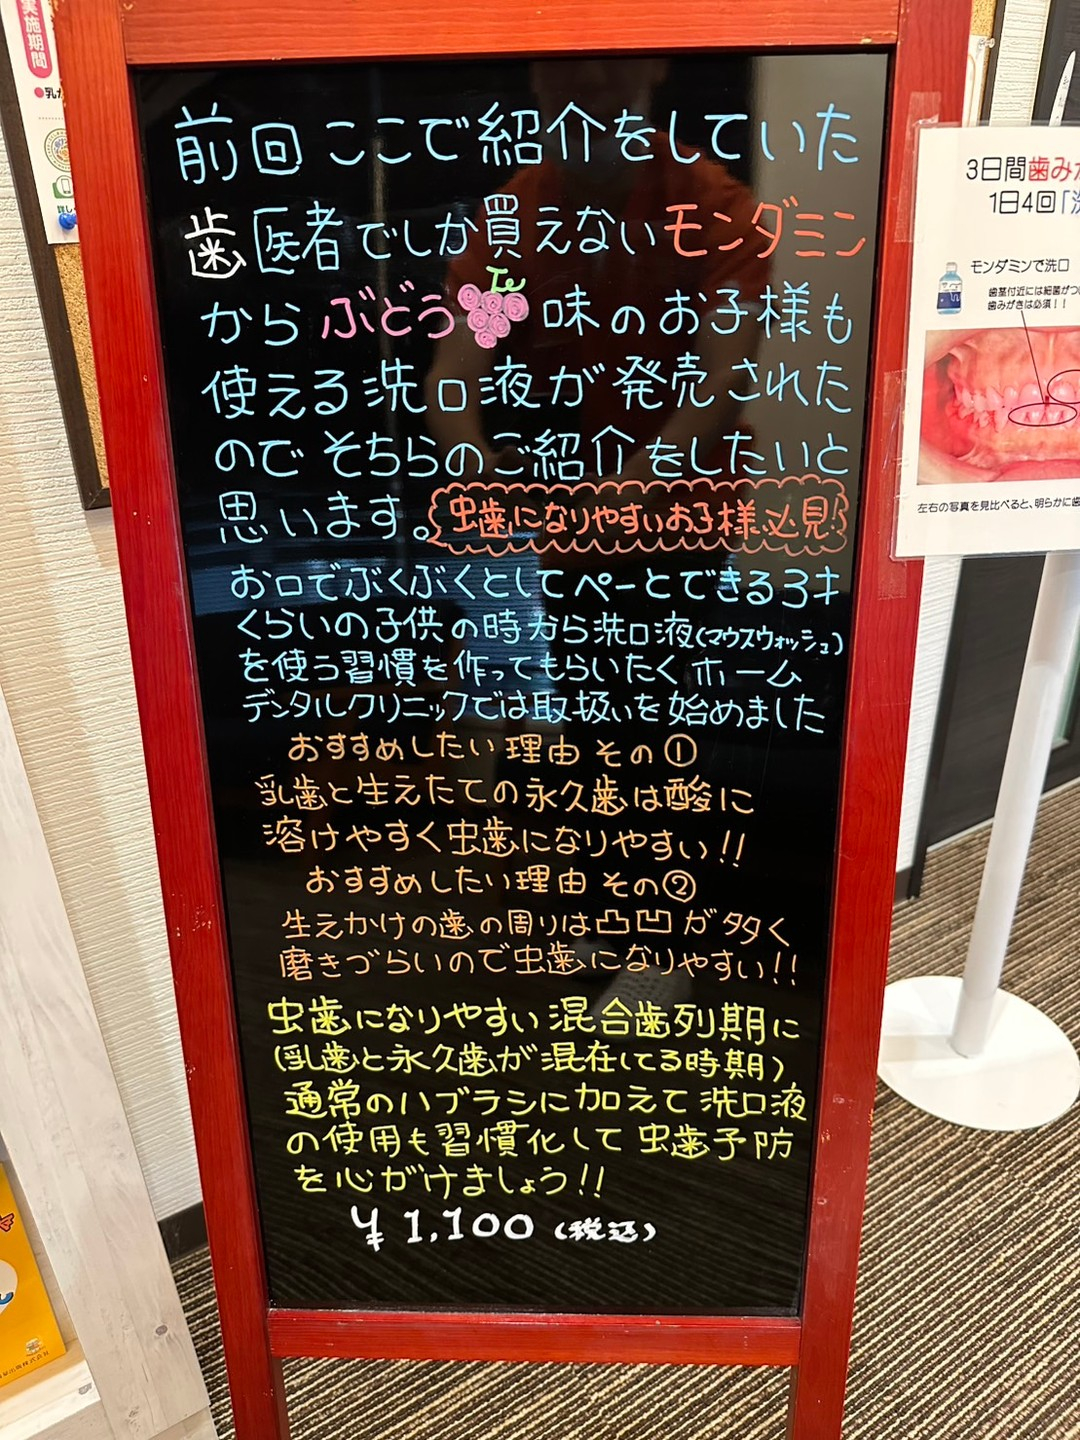 前回ここで紹介をしていた
歯医者でしか買えないモンダミン
からぶどう味のお子様も
使える洗口液が発売された
のでそちらのご紹介をしたいと
思います。虫歯になりやすいお子様必見!
お口でぶくぶくとしてペーとできる3才
くらいの子供の時から洗口液(マウスウォッシュ)
を使う習慣を作ってもらいたくホーム
デンタルクリニックでは取扱いを始めました
おすすめしたい理由その①
乳歯と生えたての永久歯は酸に
溶けやすく虫歯になりやすい!!
おすすめしたい理由その②
生えかけの歯の周りは凸凹が多く
磨きづらいので虫歯になりやすい!!
虫歯になりやすい混合歯列期に
(乳歯と永久歯が混在してる時期)
通常のハブラシに加えて洗口液
の使用も習慣化して虫歯予防
を心がけましょう!!
¥1,100(税込)
実施期間
3日間歯みが
1日4回「洗
モンダミンで洗口
歯茎付近には細菌がつ
歯みがきは必須!!
左右の写真を見比べると、明らかに歯